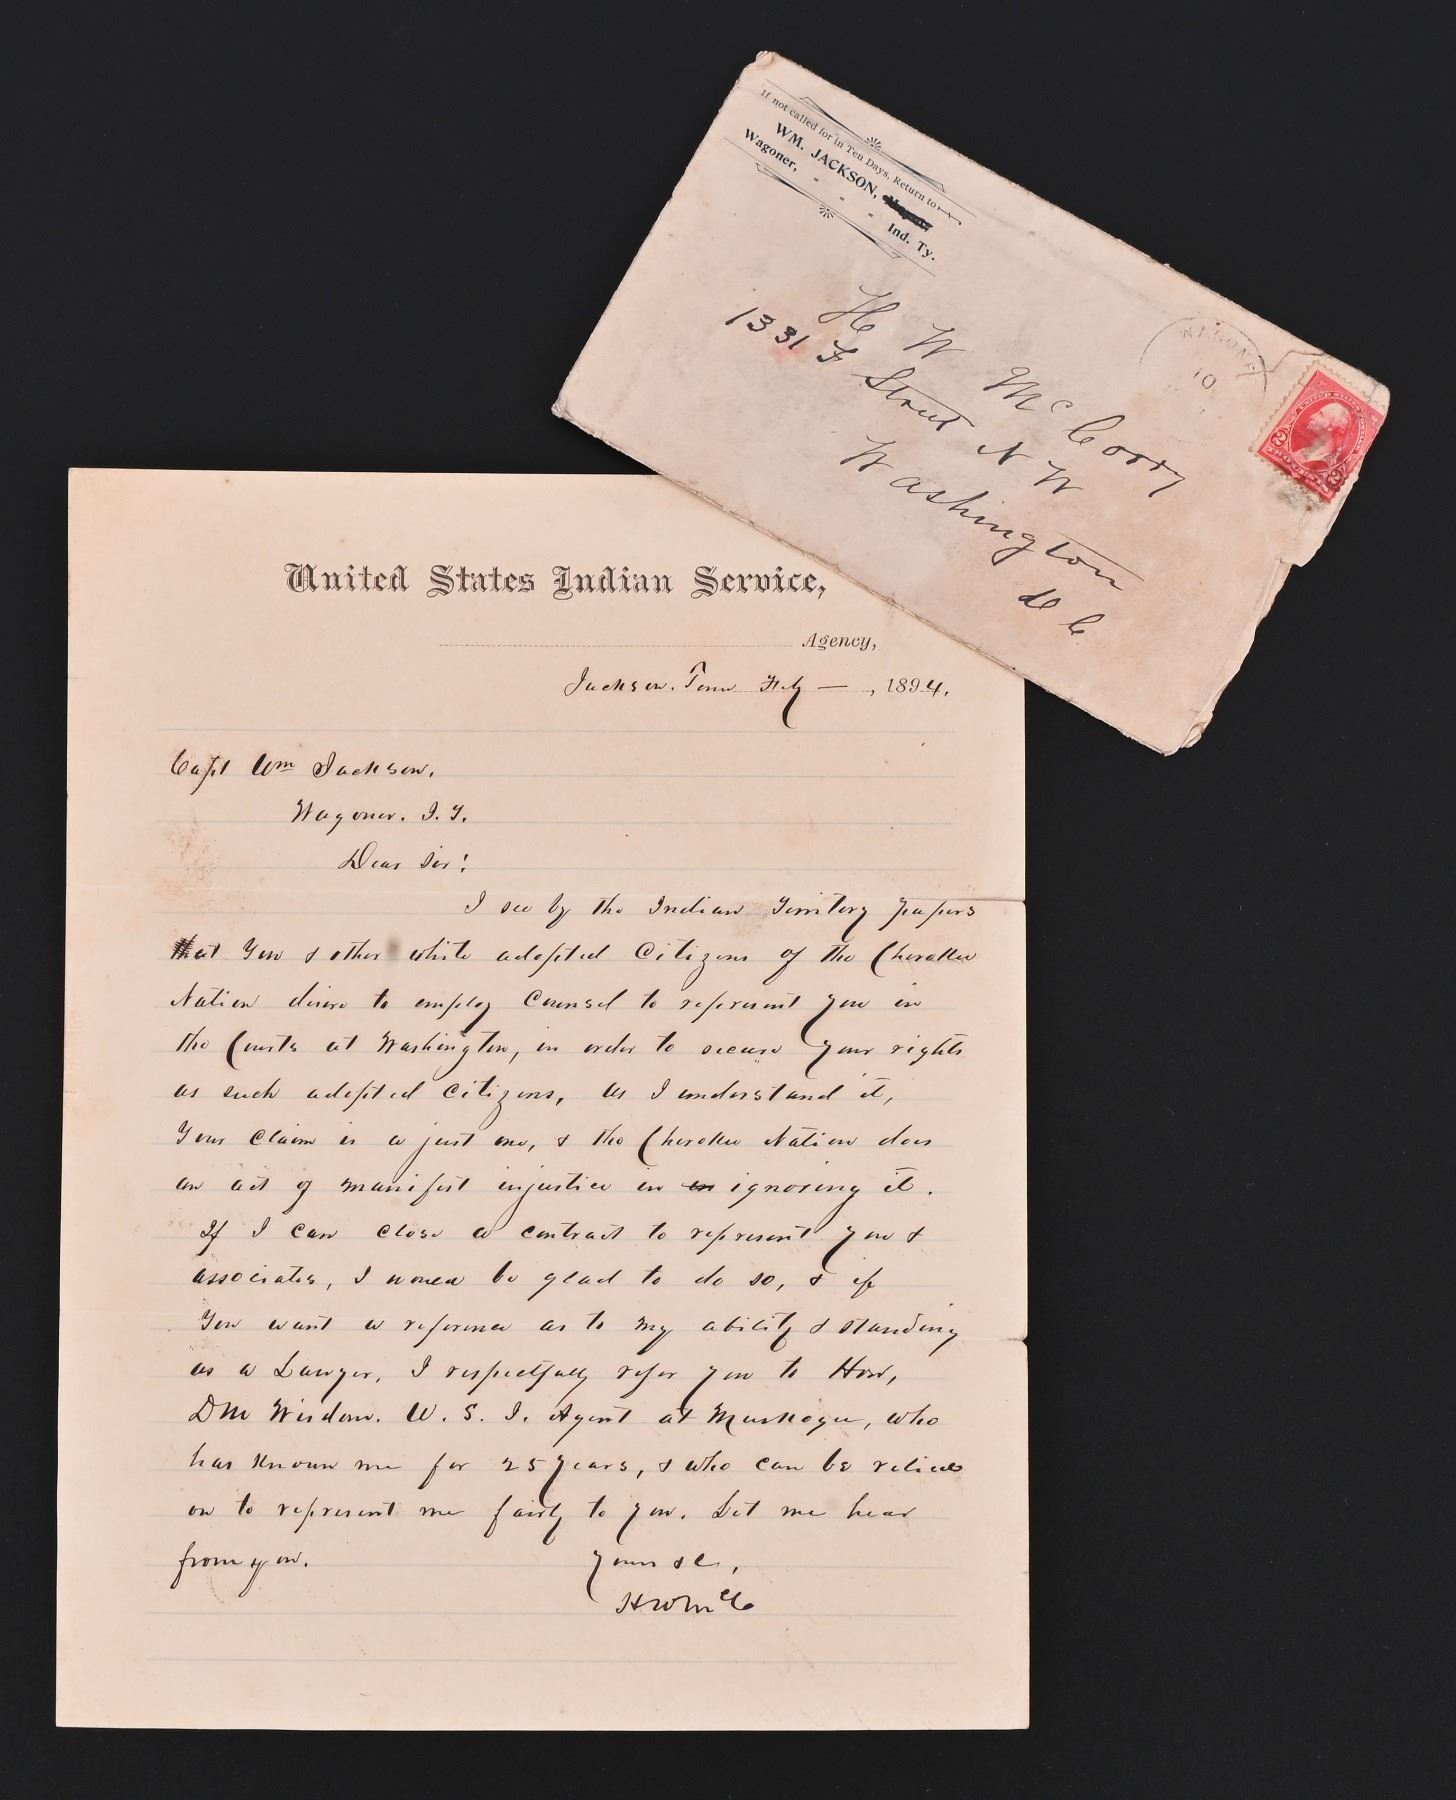 If not called for in Ten Days, Return to
WM. JACKSON,
Wagoner, - - - Ind. Ty.
H W McCorry
1331 F Street N W
Washington
D C
WAGONER
10
United States Indian Service,
Agency,
Jackson. Tenn Feby — , 1894.
Capt Wm Jackson.
Wagoner. I. T.
Dear Sir!
I see by the Indian Territory papers
that you & other white adopted Citizens of the Cherokee
Nation desire to employ Counsel to represent you in
the Courts at Washington, in order to secure your rights
as such adopted Citizens, as I understand it,
Your Claim is a just one, & the Cherokee Nation does
an act of manifest injustice in in ignoring it.
If I can close a contract to represent you &
associates, I would be glad to do so, & if
You want a reference as to my ability & standing
as a Lawyer, I respectfully refer you to Hon,
DM Wisdom. U. S. I. Agent at Muskogee, who
has known me for 25 years, & who can be relied
on to represent me fairly to you. Let me hear
from you. Yours &c,
HWMcC